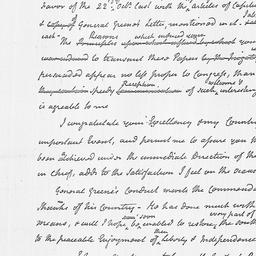 favor of the 22d. Octr. last with the articles of Capitu
& General Greene's Letter, mentioned in it.
each. Reasons which induced your
The
to transmit these Papers
persuaded appear no less proper to Congress, than
Reception welcome to
speedy of such, interesting
is agreable to me
I congratulate your Excellency & my Country
important Event, and permit me to assure you th
been achieved under the immediate Direction of the
in chief, adds to the satisfaction I feel on the occas
General Greene's conduct merits the commenda
Thanks of his Country - He has done much with
means, & will I hope soon be enabled to restore every part of the south
to the peaceable Enjoyment of their Liberty & Independence